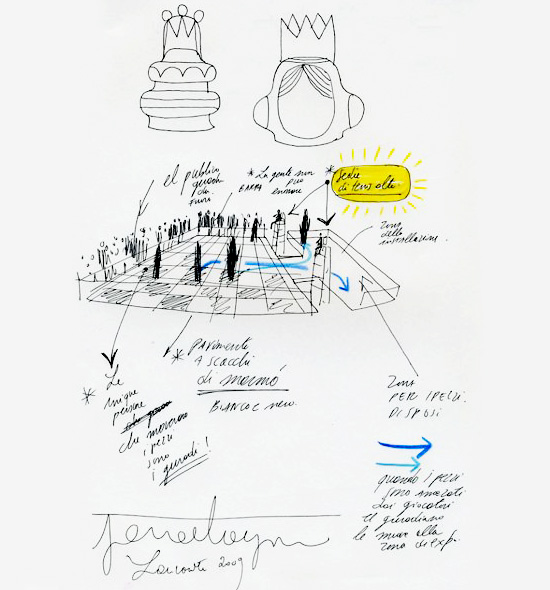 el publico
guarda
da
fuori
BARRA
* La gente non
può
entrare
* Sedie
di tennis alte
Zona
della
installazione
* PAVIMENTO
A SCACCHI
di marmó
BIANCO E nero.
* Le
uniche
persone
che muovono
i pezzi
sono
i guardi!
Zona
PER I PEZZI
DISPOSI
quando i pezzi
sono
dai giocatori
il guardiano
le muove alla
zona di exp.
2009